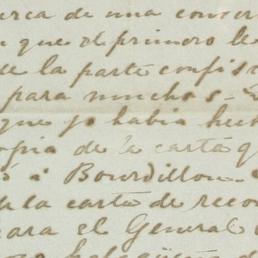 erca de una conver
n que el primero le
de la parte confis
para muchos -
que yo habia hech
opia de la carta q
ó á Bourdillon -
la carta de reco
para el General